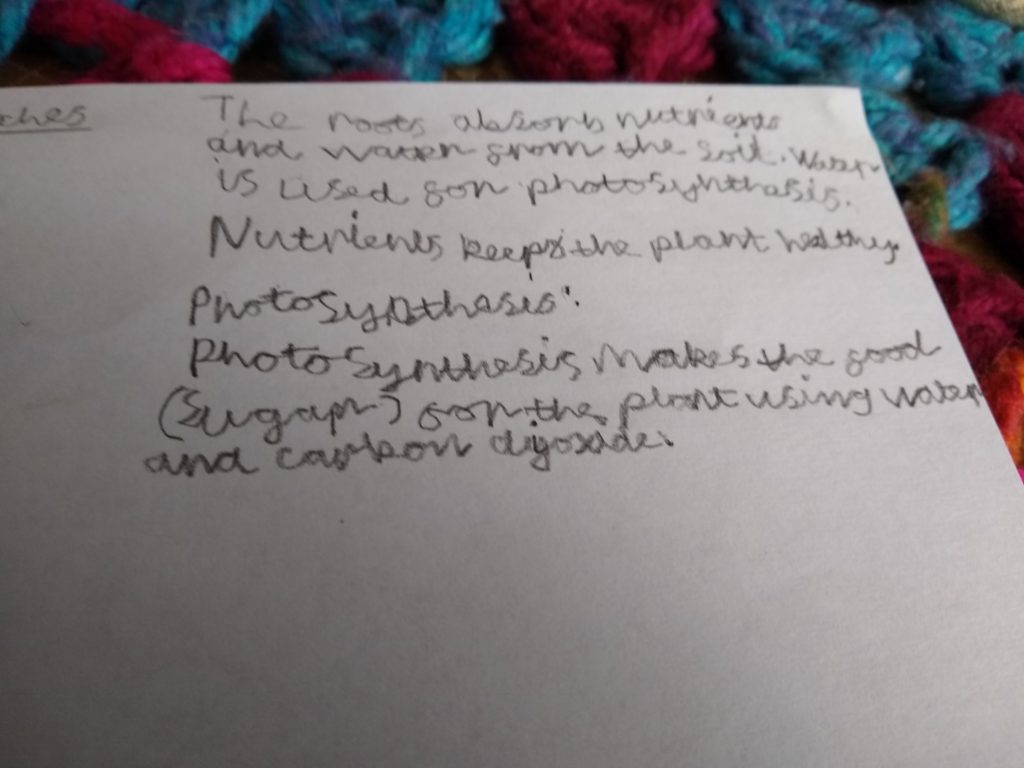 ches
The roots absorb nutrients
and water from the soil. Water
is used for photosynthasis.
Nutrients keeps the plant healthy.
Photosynthasis:
Photosynthesis makes the food
(Sugar) for the plant using water
and carbon diyoxade.